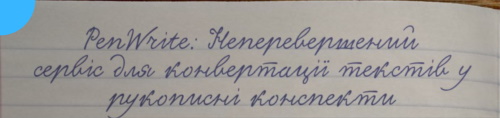 PenWrite: Неперевершений
сервіс для конвертації текстів у
рукописні конспекти